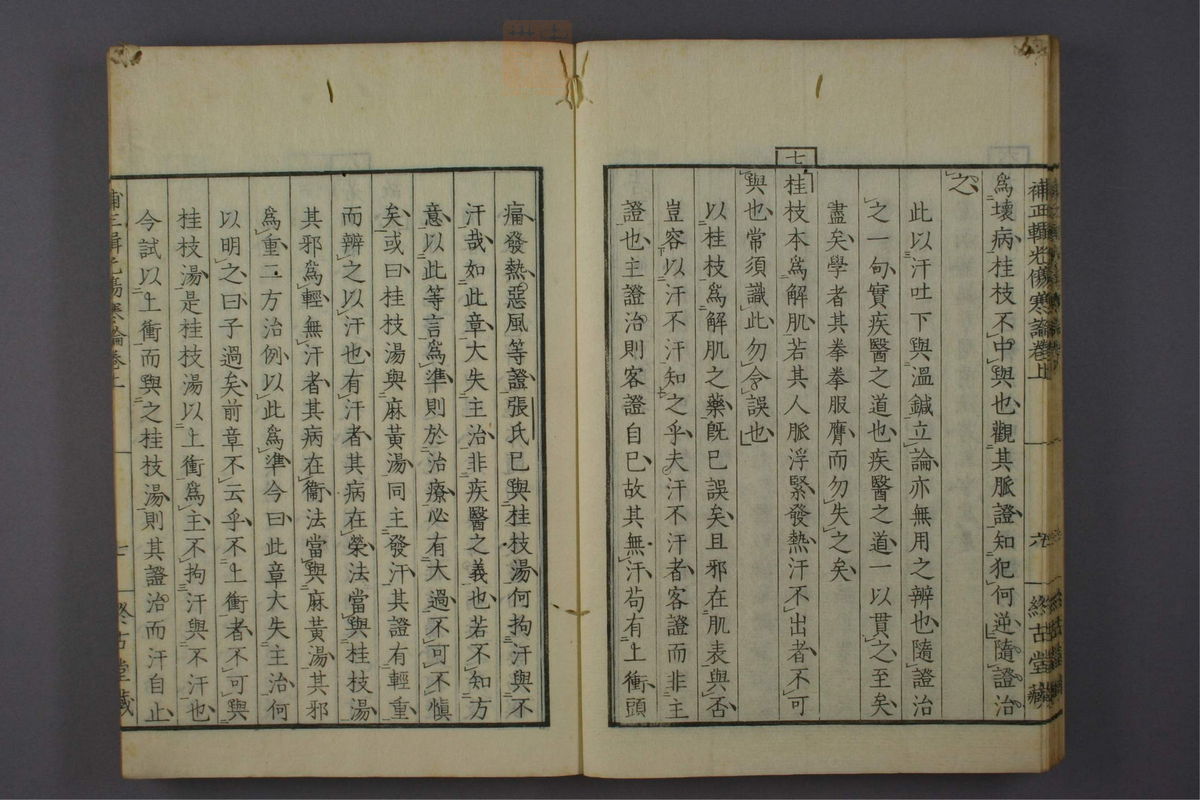 補正輯光傷寒論卷上
六
終古堂藏
爲壞病桂枝不中與也觀其脈證知犯何逆隨證治
之
此以汗吐下與溫鍼立論亦無用之辨也隨證治
之一句實疾醫之道也疾醫之道一以貫之至矣
盡矣學者其拳拳服膺而勿失之矣
七
桂枝本爲解肌若其人脈浮緊發熱汗不出者不可
與也常須識此勿令誤也
以桂枝爲解肌之藥既已誤矣且邪在肌表與否
豈容以汗不汗知之乎夫汗不汗者客證而非主
證也主證治則客證自已故其無汗苟有上衝頭
痛發熱惡風等證張氏已與桂枝湯何拘汗與不
汗哉如此章大失主治非疾醫之義也若不知方
意以此等言爲準則於治療必有大過不可不愼
矣或曰桂枝湯與麻黃湯同主發汗其證有輕重
而辨之以汗也有汗者其病在榮法當與桂枝湯
其邪爲輕無汗者其病在衞法當與麻黃湯其邪
爲重二方治例以此爲準今曰此章大失主治何
以明之曰子過矣前章不云乎不上衝者不可與
桂枝湯是桂枝湯以上衝爲主不拘汗與不汗也
今試以上衝而與之桂枝湯則其證治而汗自止
補正輯光傷寒論卷上
七
終古堂藏